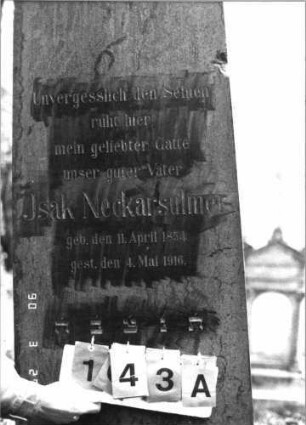 Unvergesslich den Seinen
ruht hier
mein geliebter Gatte
unser guter Vater
Isak Neckarsulmer
geb. den 11. April 1854
gest. den 4. Mai 1916.
143A